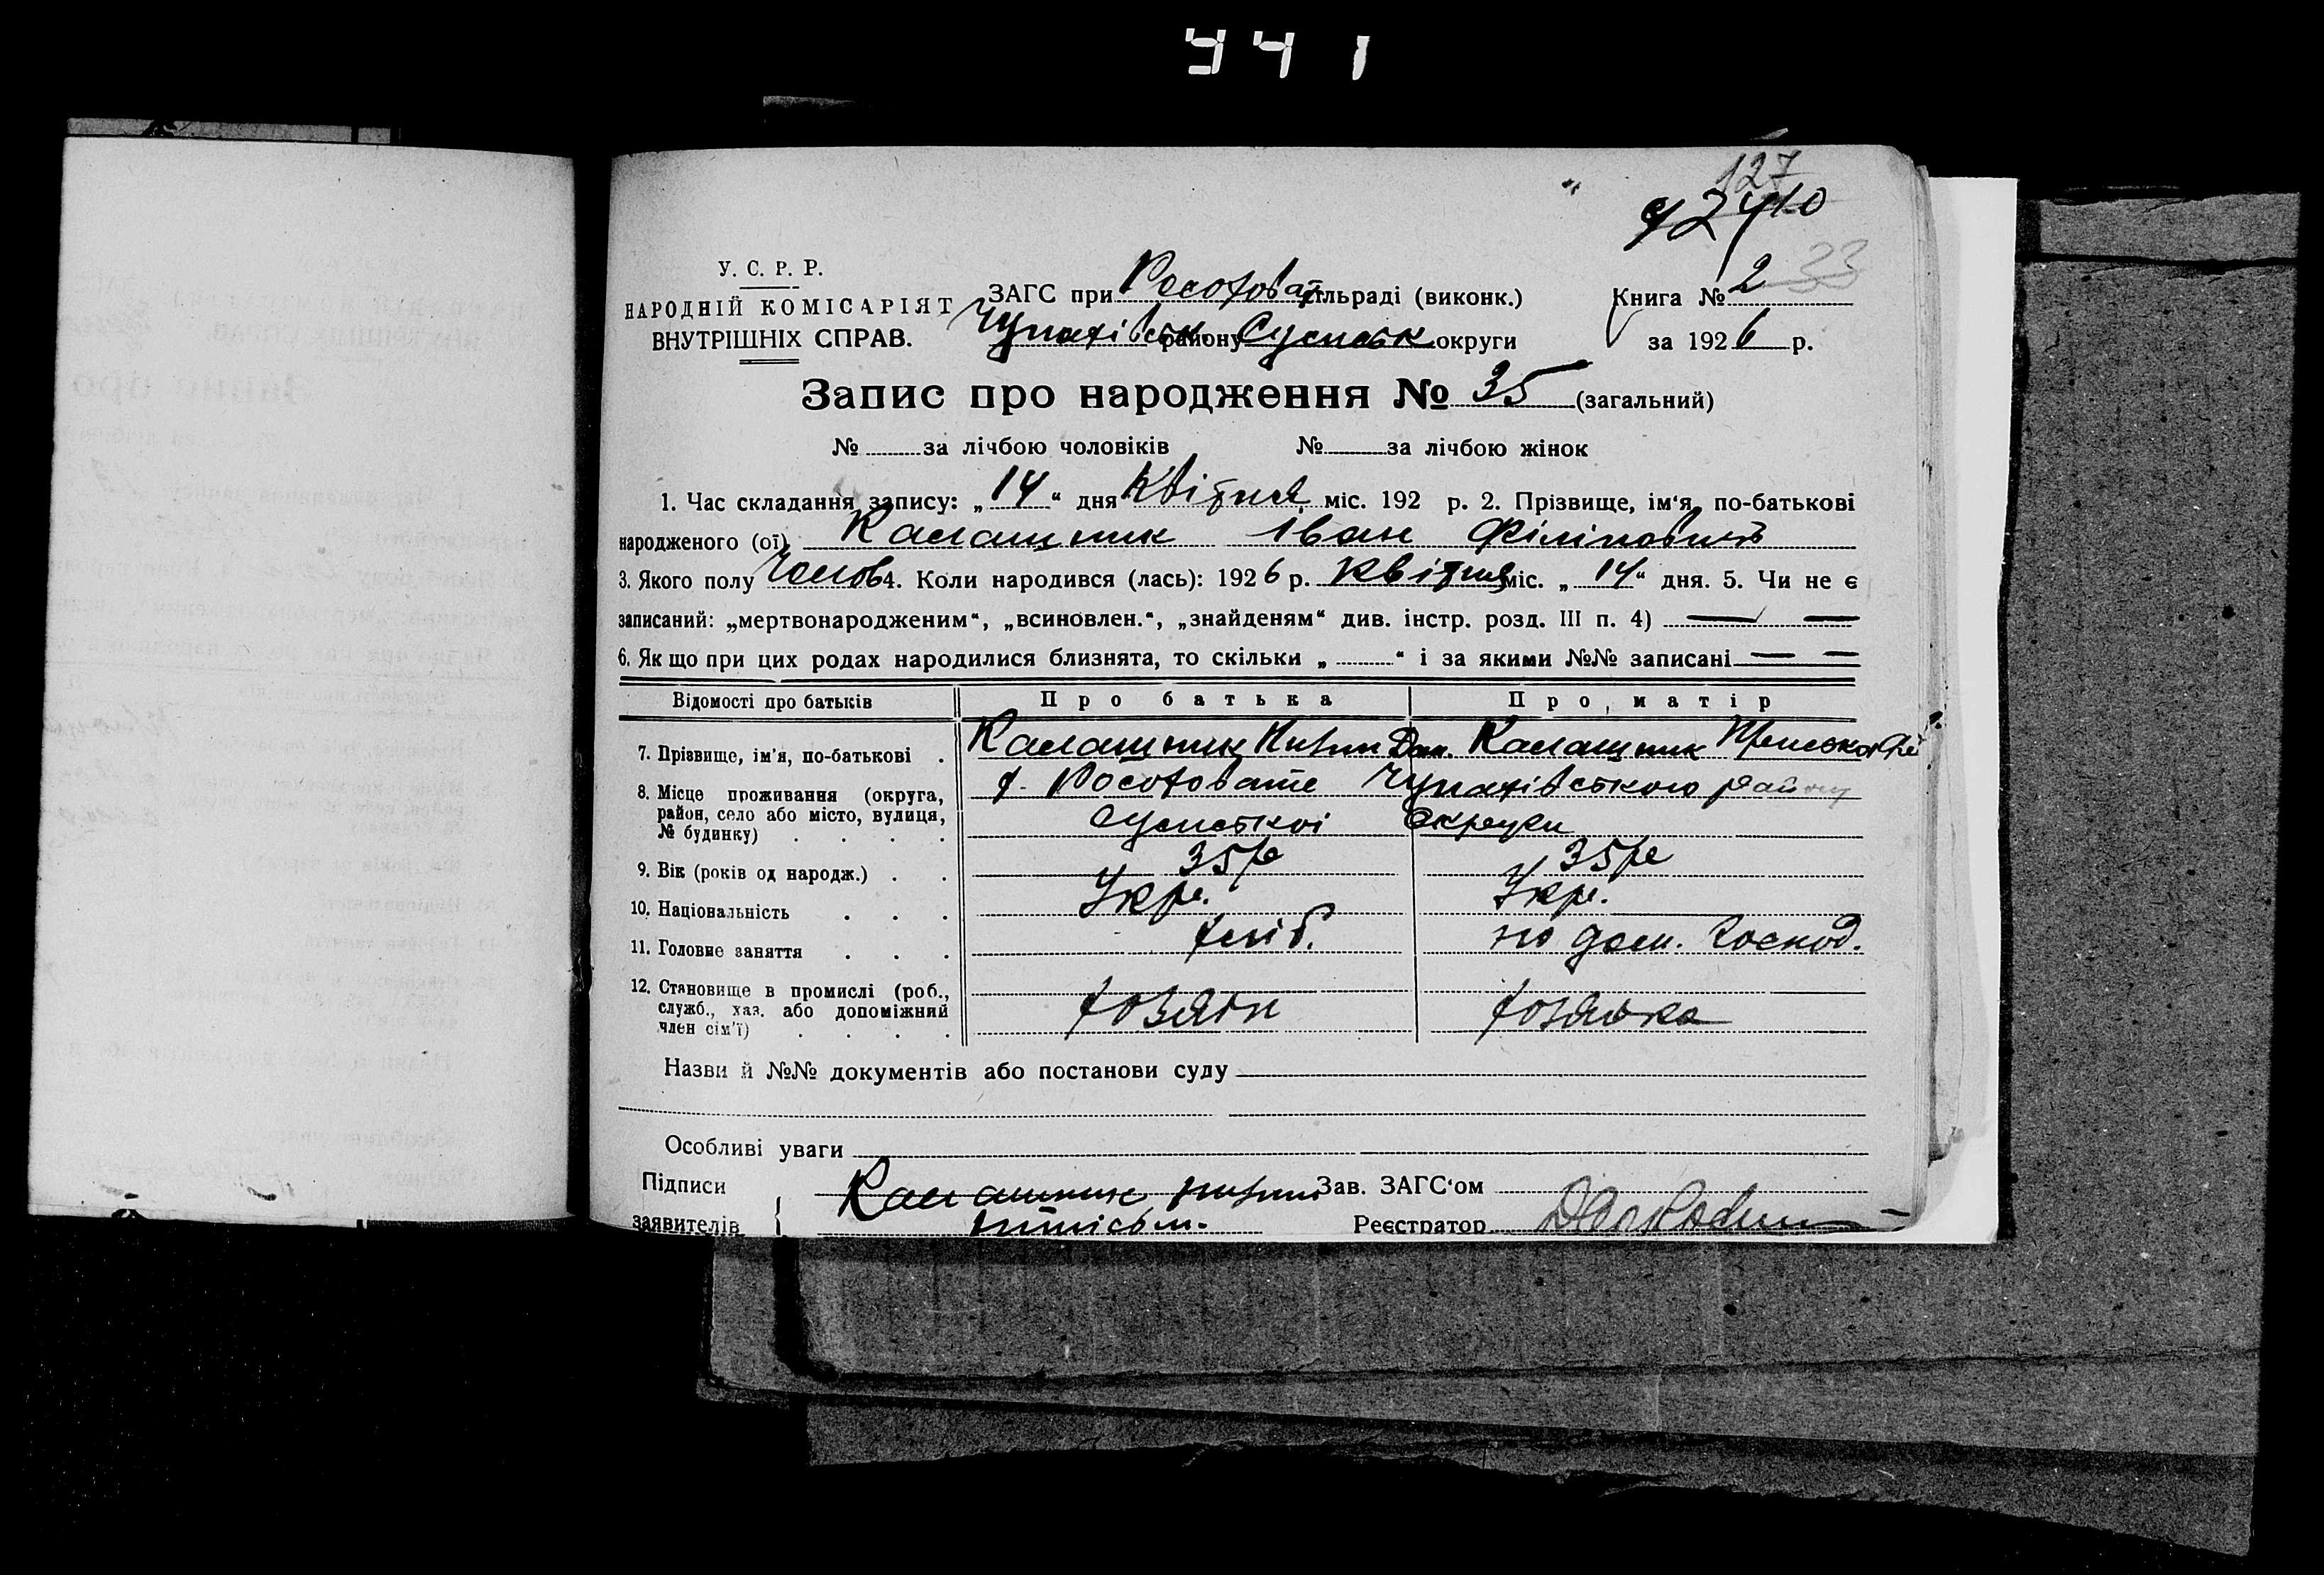 441
127
У. С. Р. Р.
НАРОДНІЙ КОМІСАРІЯТ
ВНУТРІШНІХ СПРАВ.
ЗАГС при Росоховат сільраді (виконк.)
Чупахівськ району Сумськ округи
Книга № 2 33
за 1926 р.
Запис про народження № 35 (загальний)
№ за лічбою чоловіків № за лічбою жінок
1. Час складання запису: „14“ дня Квітня міс. 192 р. 2. Прізвище, ім‘я, по-батькові
народженого (ої) Калашник Іван Філіпович
3. Якого полу Чолов 4. Коли народився (лась): 1926 р. Квітня міс. „14“ дня. 5. Чи не є
записаний: „мертвонародженим“, „всиновлен.“, „знайденям“ див. інстр. розд. III п. 4) — —
6. Якщо при цих родах народилися близнята, то скільки „ “ і за якими №№ записані — —
Відомості про батьків Про батька Про матір
7. Прізвище, ім‘я, по-батькові . Калашник Калашник
8. Місце проживання (округа, район, село або місто, вулиця, № будинку) . . . . х. Росоховате Чупахівського району
Сумської Округи
9. Вік (років од народж.) . . 35 р 35 р
10. Національність . . . Укр. Укр.
11. Головне заняття . . . хліб. по дом. господ.
12. Становище в промислі (роб., служб., хаз. або допоміжний член сім‘ї) . . . . хозяін хозяйка
Назви й №№ документів або постанови суду
Особливі уваги
Підписи
заявителів { Калашник
Зав. ЗАГС‘ом
Реєстратор